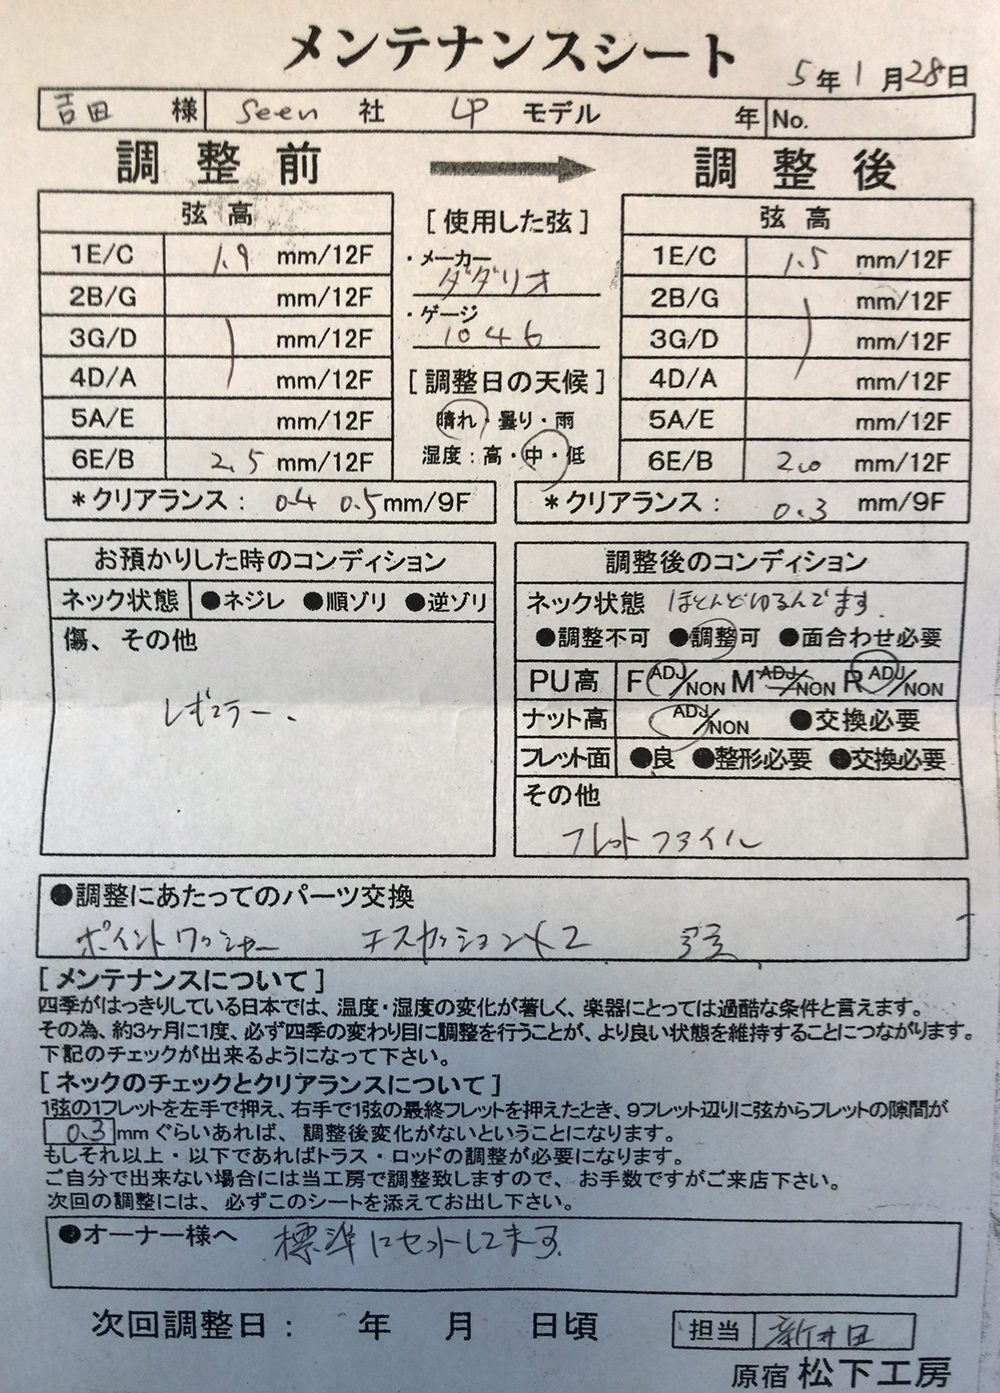 メンテナンスシート
5年1月28日
吉田 様 Seen 社 LP モデル 年 No.
調整前 調整後
弦高
1E/C 1.9 mm/12F
2B/G mm/12F
3G/D mm/12F
4D/A mm/12F
5A/E mm/12F
6E/B 2.5 mm/12F
*クリアランス: 0.4 0.5mm/9F
[使用した弦]
・メーカー
ダダリオ
・ゲージ
1046
[調整日の天候]
晴れ・曇り・雨
湿度:高・中・低
弦高
1E/C 1.5 mm/12F
2B/G mm/12F
3G/D mm/12F
4D/A mm/12F
5A/E mm/12F
6E/B 2.0 mm/12F
*クリアランス: 0.3 mm/9F
お預かりした時のコンディション
ネック状態 ●ネジレ ●順ゾリ ●逆ゾリ
傷、その他
レギュラー.
調整後のコンディション
ネック状態 ほとんどゆるんでます.
●調整不可 ●調整可 ●面合わせ必要
PU高 F ADJ/NON M ADJ/NON R ADJ/NON
ナット高 ADJ/NON ●交換必要
フレット面 ●良 ●整形必要 ●交換必要
その他
フレットファイル
●調整にあたってのパーツ交換
ポイントワッシャー エスカッション×2 弦.
[メンテナンスについて]
四季がはっきりしている日本では、温度・湿度の変化が著しく、楽器にとっては過酷な条件と言えます。
その為、約3ヶ月に1度、必ず四季の変わり目に調整を行うことが、より良い状態を維持することにつながります。
下記のチェックが出来るようになって下さい。
[ネックのチェックとクリアランスについて]
1弦の1フレットを左手で押え、右手で1弦の最終フレットを押えたとき、9フレット辺りに弦からフレットの隙間が
0.3mmぐらいあれば、調整後変化がないということになります。
もしそれ以上・以下であればトラス・ロッドの調整が必要になります。
ご自分で出来ない場合には当工房で調整致しますので、お手数ですがご来店下さい。
次回の調整には、必ずこのシートを添えてお出し下さい。
●オーナー様へ 標準にセットしてます.
次回調整日: 年 月 日頃
担当 新井田
原宿 松下工房